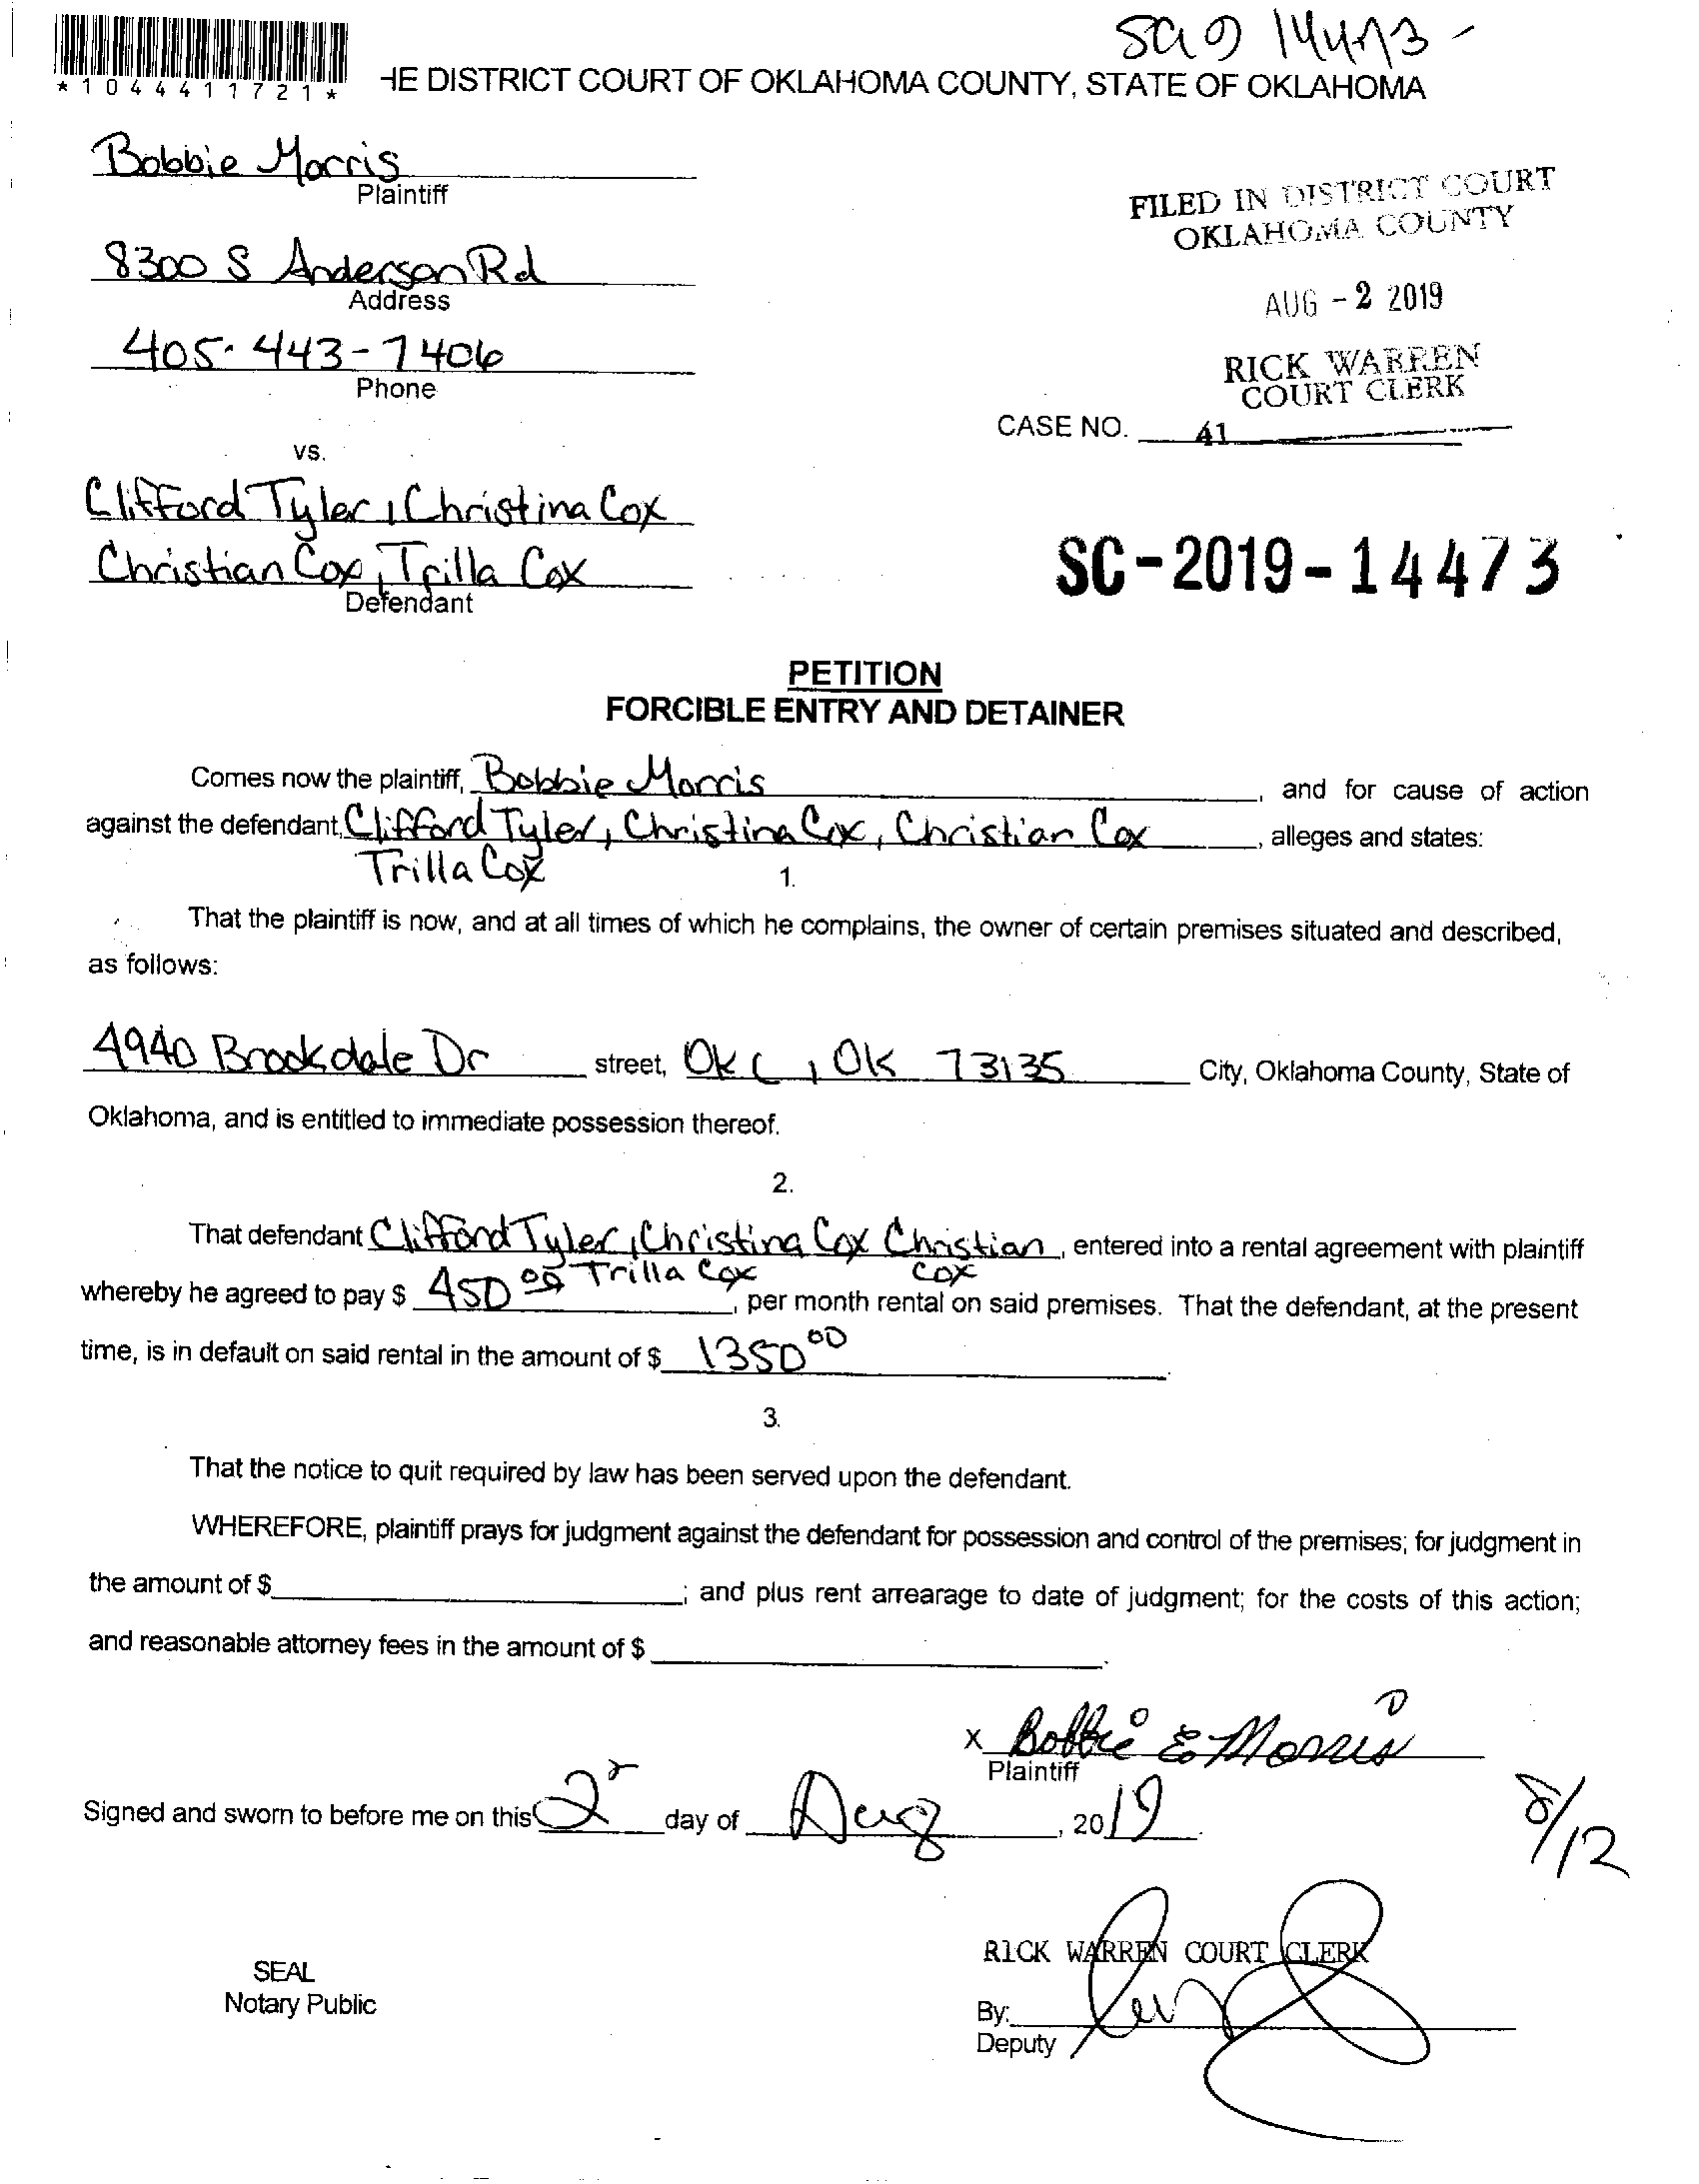 SC19 14473 -
*1044411721*
HE DISTRICT COURT OF OKLAHOMA COUNTY, STATE OF OKLAHOMA
Bobbie Morris
Plaintiff
8300 S Anderson Rd
Address
405-443-7406
Phone
vs.
Clifford Tyler, Christina Cox
Christian Cox, Trilla Cox
Defendant
FILED IN DISTRICT COURT
OKLAHOMA COUNTY
AUG - 2 2019
RICK WARREN
COURT CLERK
CASE NO. 41
SC-2019-14473
PETITION
FORCIBLE ENTRY AND DETAINER
Comes now the plaintiff, Bobbie Morris, and for cause of action
against the defendant, Clifford Tyler, Christina Cox, Christian Cox, alleges and states:
Trilla Cox
1.
That the plaintiff is now, and at all times of which he complains, the owner of certain premises situated and described,
as follows:
4940 Brookdale Dr street, OKC, OK 73135 City, Oklahoma County, State of
Oklahoma, and is entitled to immediate possession thereof.
2.
That defendant Clifford Tyler, Christina Cox Christian, entered into a rental agreement with plaintiff
Trilla Cox Cox
whereby he agreed to pay $ 450 00, per month rental on said premises. That the defendant, at the present
time, is in default on said rental in the amount of $ 1350 00.
3.
That the notice to quit required by law has been served upon the defendant.
WHEREFORE, plaintiff prays for judgment against the defendant for possession and control of the premises; for judgment in
the amount of $ ; and plus rent arrearage to date of judgment; for the costs of this action;
and reasonable attorney fees in the amount of $ .
x Bobbie E Morris
Plaintiff
Signed and sworn to before me on this 2 day of Aug, 2019.
8/12
RICK WARREN COURT CLERK
SEAL
Notary Public
By:
Deputy